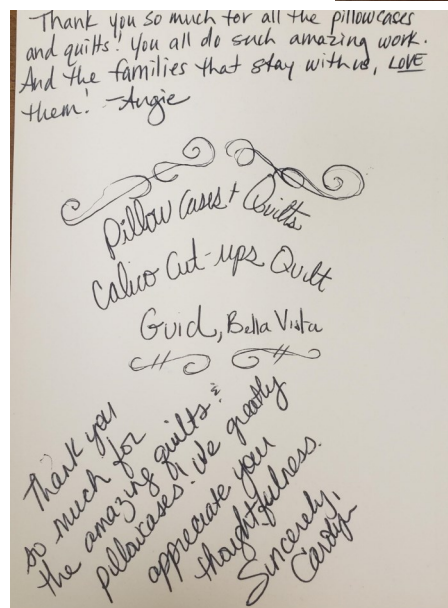 Thank you so much for all the pillowcases
and quilts! You all do such amazing work.
And the families that stay with us, LOVE
them! -Angie
Pillow Cases + Quilts
Calico Cut-ups Quilt
Guid, Bella Vista
Thank you
so much for
the amazing quilts &
pillowcases. We greatly
appreciate you
thoughtfulness.
Sincerely,
Carolyn